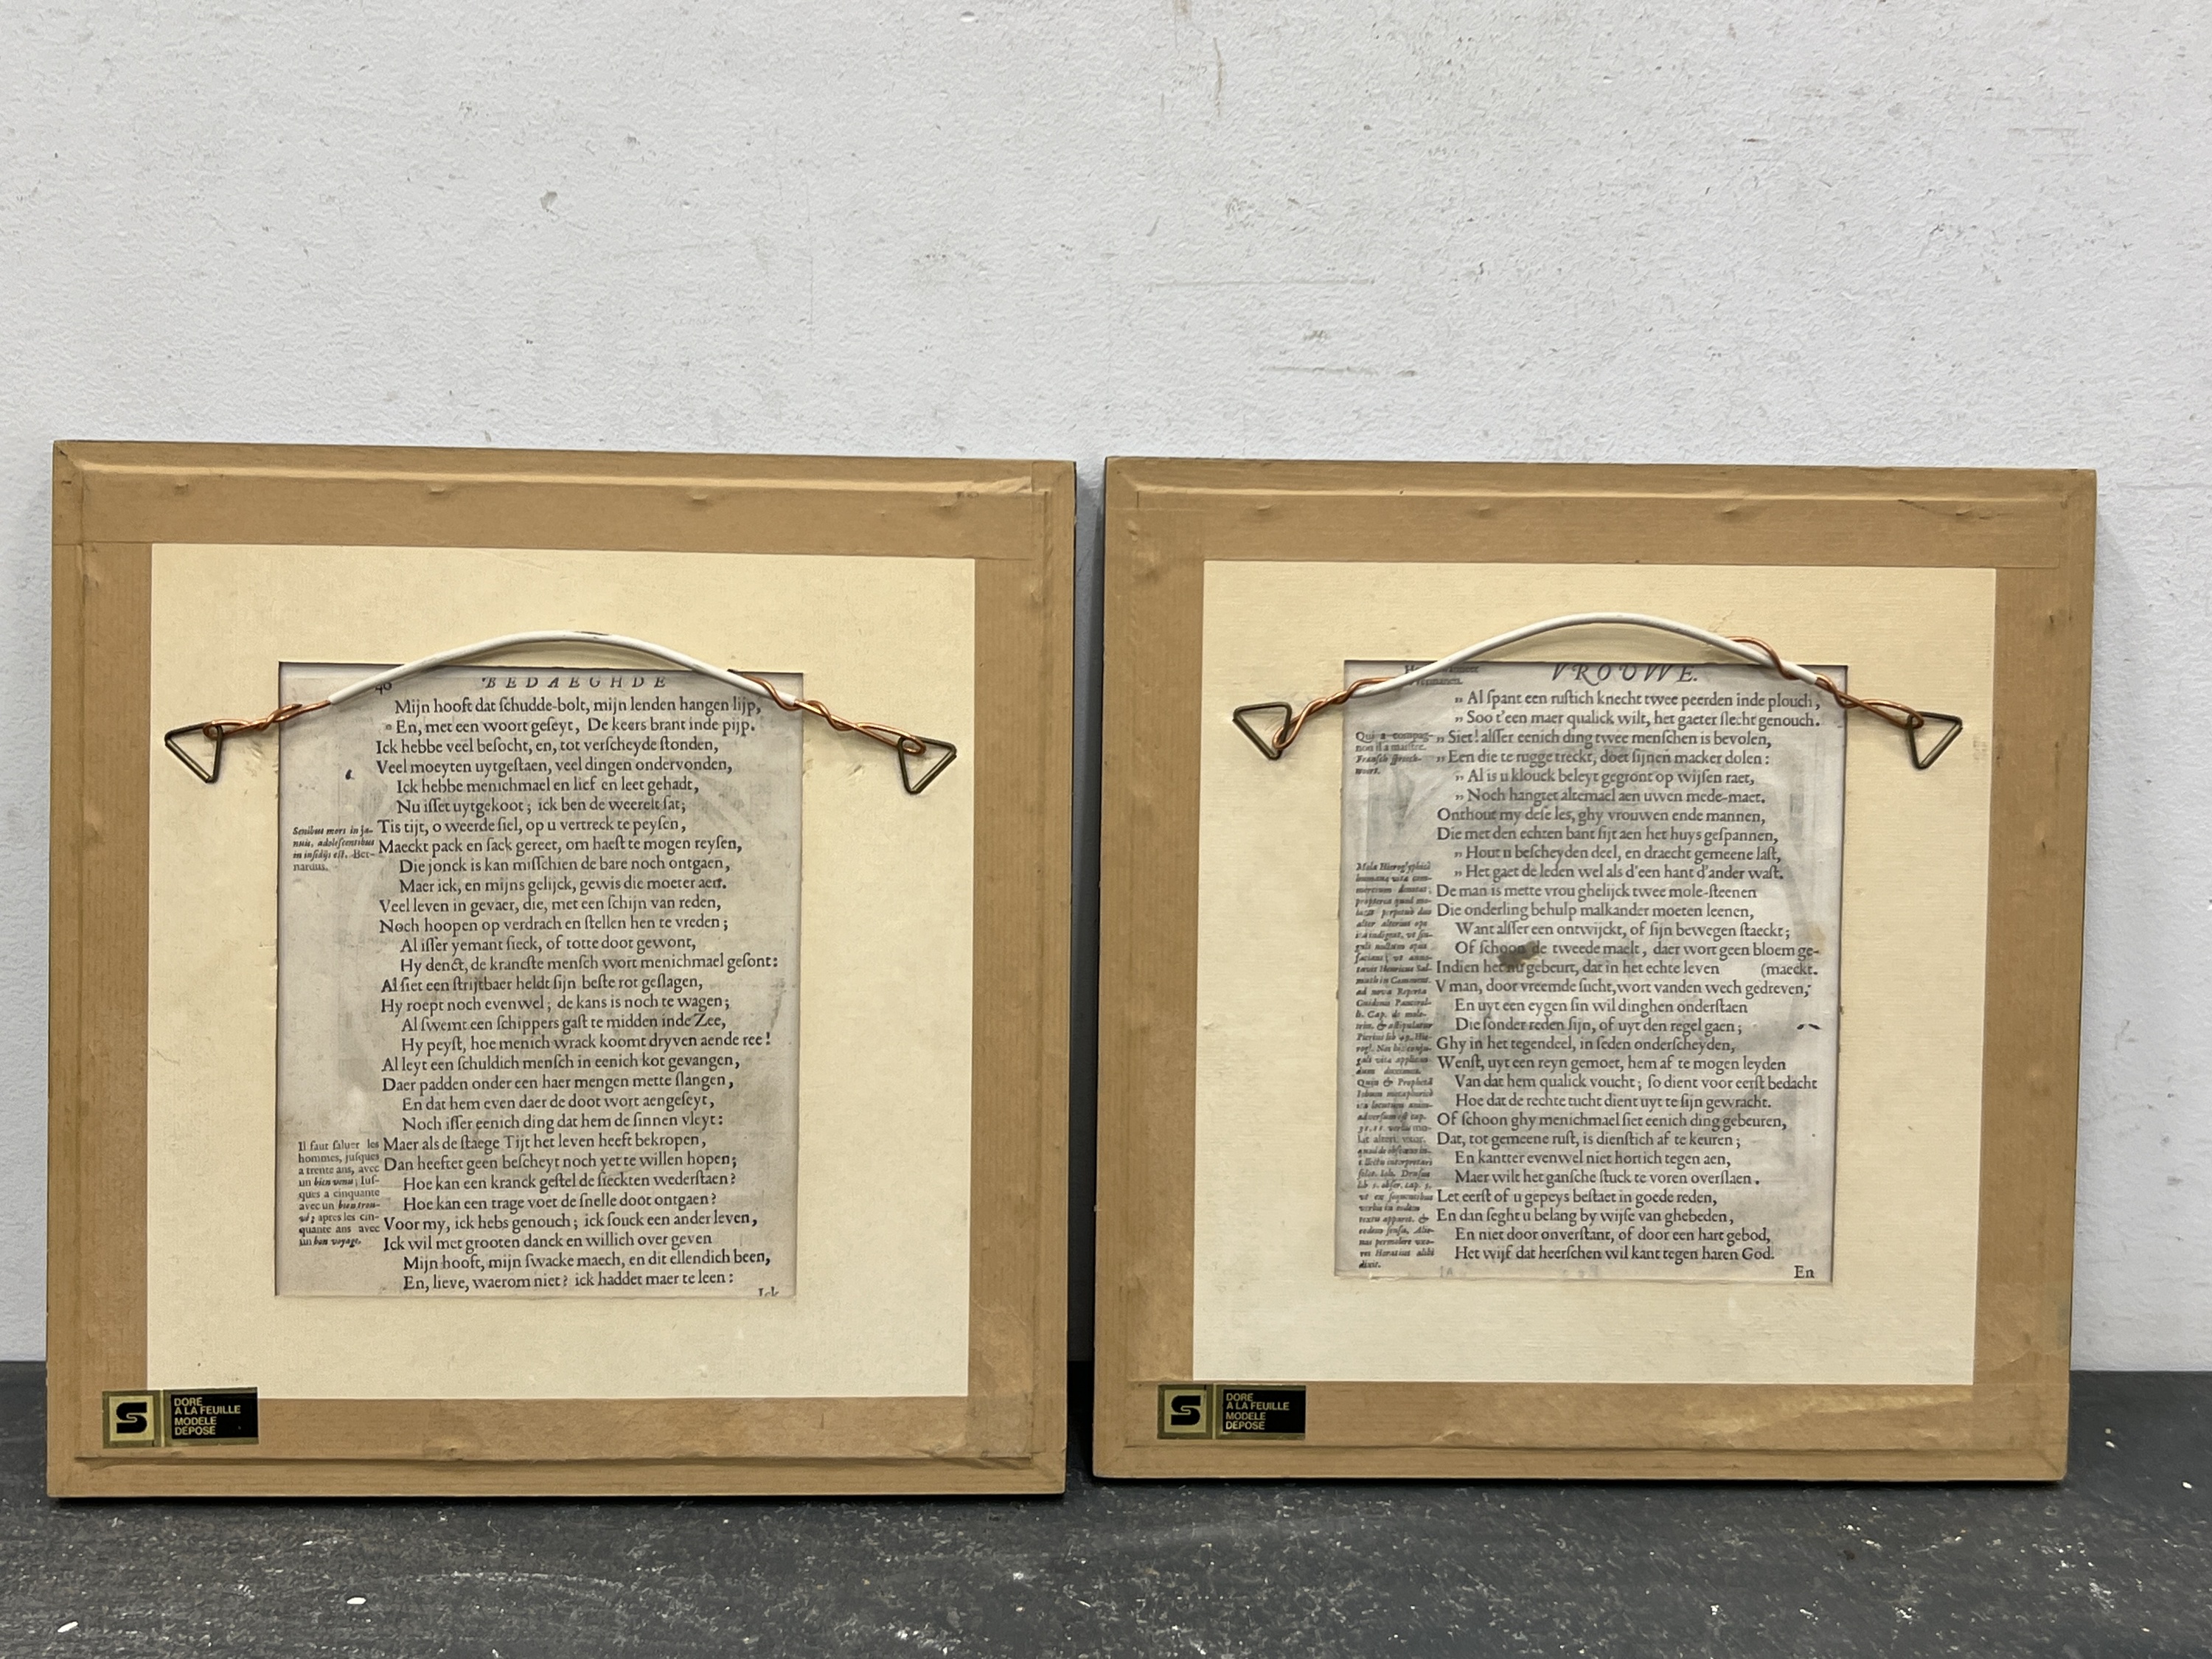 BEDAEGHDE
Mijn hooft dat ſchudde-bolt, mijn lenden hangen lijp,
" En, met een woort geſeyt, De keers brant inde pijp.
Ick hebbe veel beſocht, en, tot verſcheyde ſtonden,
Veel moeyten uytgeſtaen, veel dingen ondervonden,
Ick hebbe menichmael en lief en leet gehadt,
Nu iſſet uytgekoot; ick ben de weerelt ſat;
Tis tijt, o weerde ſiel, op u vertreck te peyſen,
Maeckt pack en ſack gereet, om haeſt te mogen reyſen,
Die jonck is kan miſſchien de bare noch ontgaen,
Maer ick, en mijns gelijck, gewis die moeter aen.
Veel leven in gevaer, die, met een ſchijn van reden,
Noch hoopen op verdrach en ſtellen hen te vreden;
Al iſſer yemant ſieck, of totte doot gewont,
Hy denct, de kranckſte menſch wort menichmael geſont:
Al ſiet een ſtrijtbaer heldt ſijn beſte rot geſlagen,
Hy roept noch evenwel; de kans is noch te wagen;
Al ſwemt een ſchippers gaſt te midden inde Zee,
Hy peyſt, hoe menich wrack koomt dryven aende ree!
Al leyt een ſchuldich menſch in eenich kot gevangen,
Daer padden onder een haer mengen mette ſlangen,
En dat hem even daer de doot wort aengeſeyt,
Noch iſſer eenich ding dat hem de ſinnen vleyt:
Maer als de ſtaege Tijt het leven heeft bekropen,
Dan heeftet geen beſcheyt noch yet te willen hopen;
Hoe kan een kranck geſtel de ſieckten wederſtaen?
Hoe kan een trage voet de ſnelle doot ontgaen?
Voor my, ick hebs genouch; ick ſouck een ander leven,
Ick wil met grooten danck en willich over geven
Mijn hooft, mijn ſwacke maech, en dit ellendich been,
En, lieve, waerom niet? ick haddet maer te leen:
Ick
Senibus mors in ja-
nuis, adoleſcentibus
in inſidijs eſt. Ber-
nardus.
Il faut ſaluer les
hommes, juſques
a trente ans, avec
un bien venu; Juſ-
ques a cinquante
avec un bien trou-
vé; apres les cin-
quante ans avec
un bon voyage.
DORE
A LA FEUILLE
MODELE
DEPOSE
VROUWE.
" Al ſpant een ruſtich knecht twee peerden inde plouch,
" Soo t'een maer qualick wilt, het gaeter ſlecht genouch.
" Siet! alſſer eenich ding twee menſchen is bevolen,
" Een die te rugge treckt, doet ſijnen macker dolen:
" Al is u klouck beleyt gegront op wijſen raet,
" Noch hangtet altemael aen uwen mede-maet.
Onthout my deſe les, ghy vrouwen ende mannen,
Die met den echten bant ſijt aen het huys geſpannen,
" Hout u beſcheyden deel, en draecht gemeene laſt,
" Het gaet de leden wel als d'een hant d'ander waſt.
De man is mette vrou ghelijck twee mole-ſteenen
Die onderling behulp malkander moeten leenen,
Want alſſer een ontwijckt, of ſijn bewegen ſtaeckt;
Of ſchoon de tweede maelt, daer wort geen bloem ge-
Indien het nu gebeurt, dat in het echte leven (maeckt.
V man, door vreemde ſucht, wort vanden wech gedreven,
En uyt een eygen ſin wil dinghen onderſtaen
Die ſonder reden ſijn, of uyt den regel gaen;
Ghy in het tegendeel, in ſeden onderſcheyden,
Wenſt, uyt een reyn gemoet, hem af te mogen leyden
Van dat hem qualick voucht; ſo dient voor eerſt bedacht
Hoe dat de rechte tucht dient uyt te ſijn gewracht.
Of ſchoon ghy menichmael ſiet eenich ding gebeuren,
Dat, tot gemeene ruſt, is dienſtich af te keuren;
En kantter evenwel niet hortich tegen aen,
Maer wilt het ganſche ſtuck te voren overſlaen.
Let eerſt of u gepeys beſtaet in goede reden,
En dan ſeght u belang by wijſe van ghebeden,
En niet door onverſtant, of door een hart gebod,
Het wijf dat heerſchen wil kant tegen haren God.
En
Qui a compag-
non il a maiſtre.
Franſch ſpreeck-
woort.
DORE
A LA FEUILLE
MODELE
DEPOSE